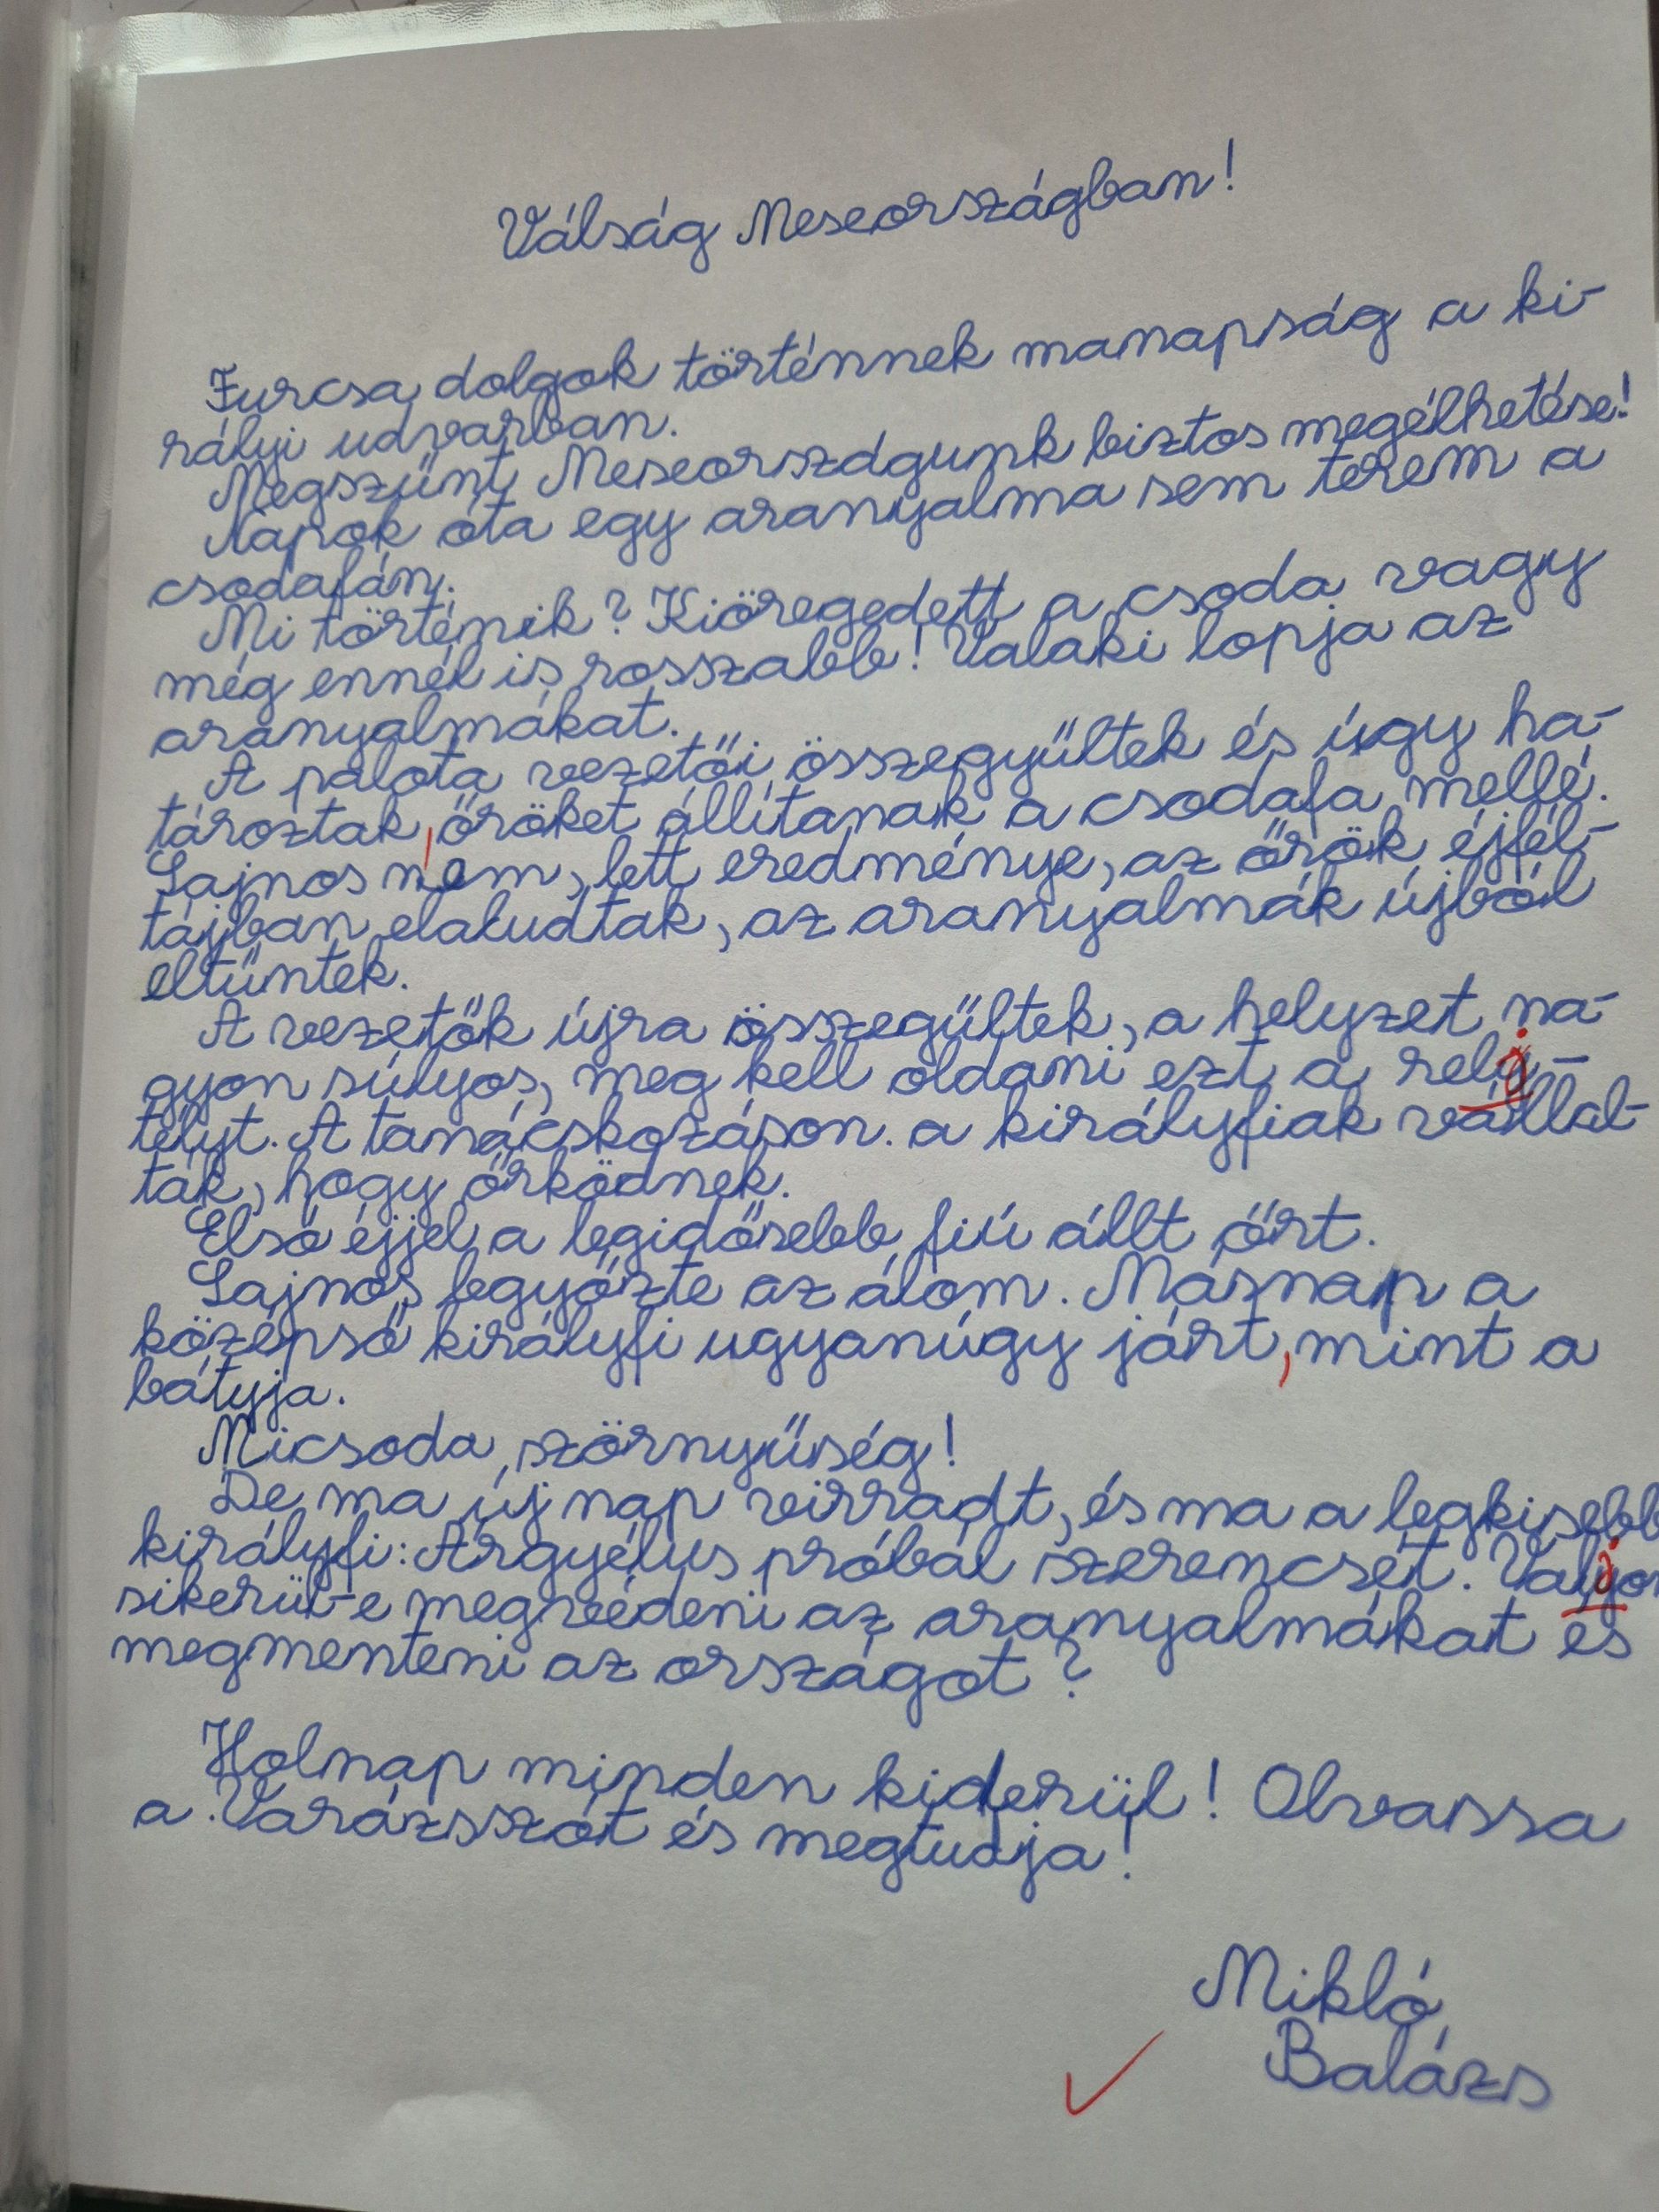 Válság Meseországban!
Furcsa dolgok történnek manapság a ki-
rályi udvarban.
Megszűnt Meseországunk biztos megélhetése!
Napok óta egy aranyalma sem terem a
csodafán.
Mi történik? Kiöregedett a csoda vagy
még ennél is rosszabb! Valaki lopja az
aranyalmákat.
A palota vezetői összegyűltek és úgy ha-
tároztak, őröket állítanak a csodafa mellé.
Sajnos nem lett eredménye, az őrök éjfél-
tájban elaludtak, az aranyalmák újból
eltűntek.
A vezetők újra összegűltek, a helyzet na-
gyon súlyos, meg kell oldani ezt a rej-
télyt. A tanácskozáson a királyfiak vállal-
ták, hogy őrködnek.
Első éjjel a legidősebb fiú állt őrt.
Sajnos legyőzte az álom. Másnap a
középső királyfi ugyanúgy járt, mint a
bátyja.
Micsoda szörnyűség!
De ma új nap virradt, és ma a legkisebb
királyfi: Árgyélus próbál szerencsét. Vajon
sikerül-e megvédeni az aranyalmákat és
megmenteni az országot?
Holnap minden kiderül! Olvassa
a Varázsszót és megtudja!
Mikló
Balázs